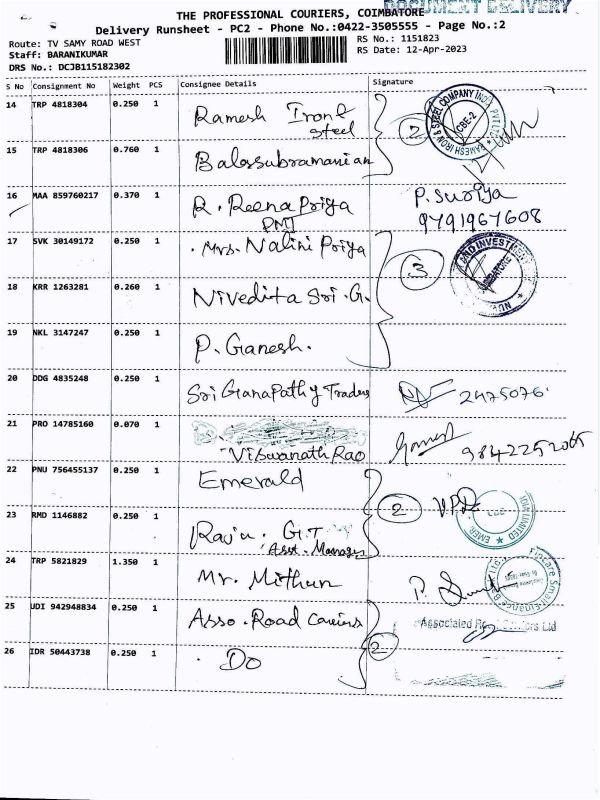 DOCUMENT DELIVERY
THE PROFESSIONAL COURIERS, COIMBATORE
Delivery Runsheet - PC2 - Phone No.:0422-3505555 - Page No.:2
Route: TV SAMY ROAD WEST
RS No.: 1151823
Staff: BARANIKUMAR
RS Date: 12-Apr-2023
DRS No.: DCJB115182302
S No Consignment No Weight PCS Consignee Details Signature
14 TRP 4818304 0.250 1 Ramesh Iron & steel
RAMESH IRON & STEEL COMPANY INDIA PVT LTD
CBE-2
2
15 TRP 4818306 0.760 1 Balassubramanian
16 MAA 859760217 0.370 1 R. Reena Priya
PMJ
P. Suriya
9791967608
17 SVK 30149172 0.250 1 Mrs. Nalini Priya
3
18 KRR 1263281 0.260 1 Nivedita Sri. G.
19 NKL 3147247 0.250 1 P. Ganesh.
20 DDG 4835248 0.250 1 Sri Ganapathy Traders 2475076
21 PRO 14785160 0.070 1 Viswanath Rao
22 PNU 756455137 0.250 1 Emerald
2
23 RMD 1146882 0.250 1 Raju. G.T
Asst. Manager
24 TRP 5821829 1.350 1 Mr. Mithun
25 UDI 942948834 0.250 1 Asso. Road Carriers
Associated Road Carriers Ltd
2
26 IDR 50443738 0.250 1 Do